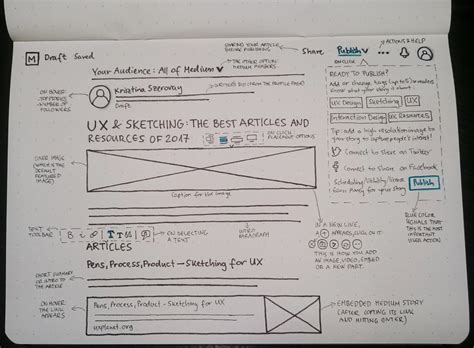 SHARING YOUR ARTICLE
BEFORE PUBLISHING
ACTIONS & HELP
M Draft Saved
Share Publish
THE OTHER OPTION:
MEDIUM MEMBERS
ON CLICK
Your Audience: All of Medium
ON HOVER:
NUMBER OF
FOLLOWERS
Kristina Szerovay
Draft
READY TO PUBLISH?
Add or change tags (up to 5) so readers
know what your story is about
UX Design Sketching UX
Interaction Design UX Resources
Tip: add a high resolution image to
your story to capture people's interest!
Connect to share on Twitter
Connect to share on Facebook
Publish
from for your story
UX & SKETCHING: THE BEST ARTICLES AND
RESOURCES OF 2017
ON CLICK
PLACEMENT OPTIONS
COVER IMAGE
(WHICH IS THE
DEFAULT
FEATURED IMAGE)
Caption for the image
BLUE COLOR
SIGNALS THAT
THIS IS THE MOST
IMPORTANT
USER ACTION
TEXT
TOOLBAR
B i T T
ON SELECTING
A TEXT
INTRO
PARAGRAPH
IN A NEW LINE,
A + APPEARS, CLICK ON IT
THIS IS HOW YOU ADD
AN IMAGE, VIDEO, EMBED
OR A NEW PART.
ARTICLES
Pens, Process, Product → Sketching for UX
SHORT SUMMARY
OR INTRO TO
THE ARTICLE
ON HOVER
THE LINK
APPEARS
Pens, Process, Product - Sketching for UX
uxplanet.org
EMBEDDED MEDIUM STORY
(AFTER COPYING ITS LINK
AND HITTING ENTER)